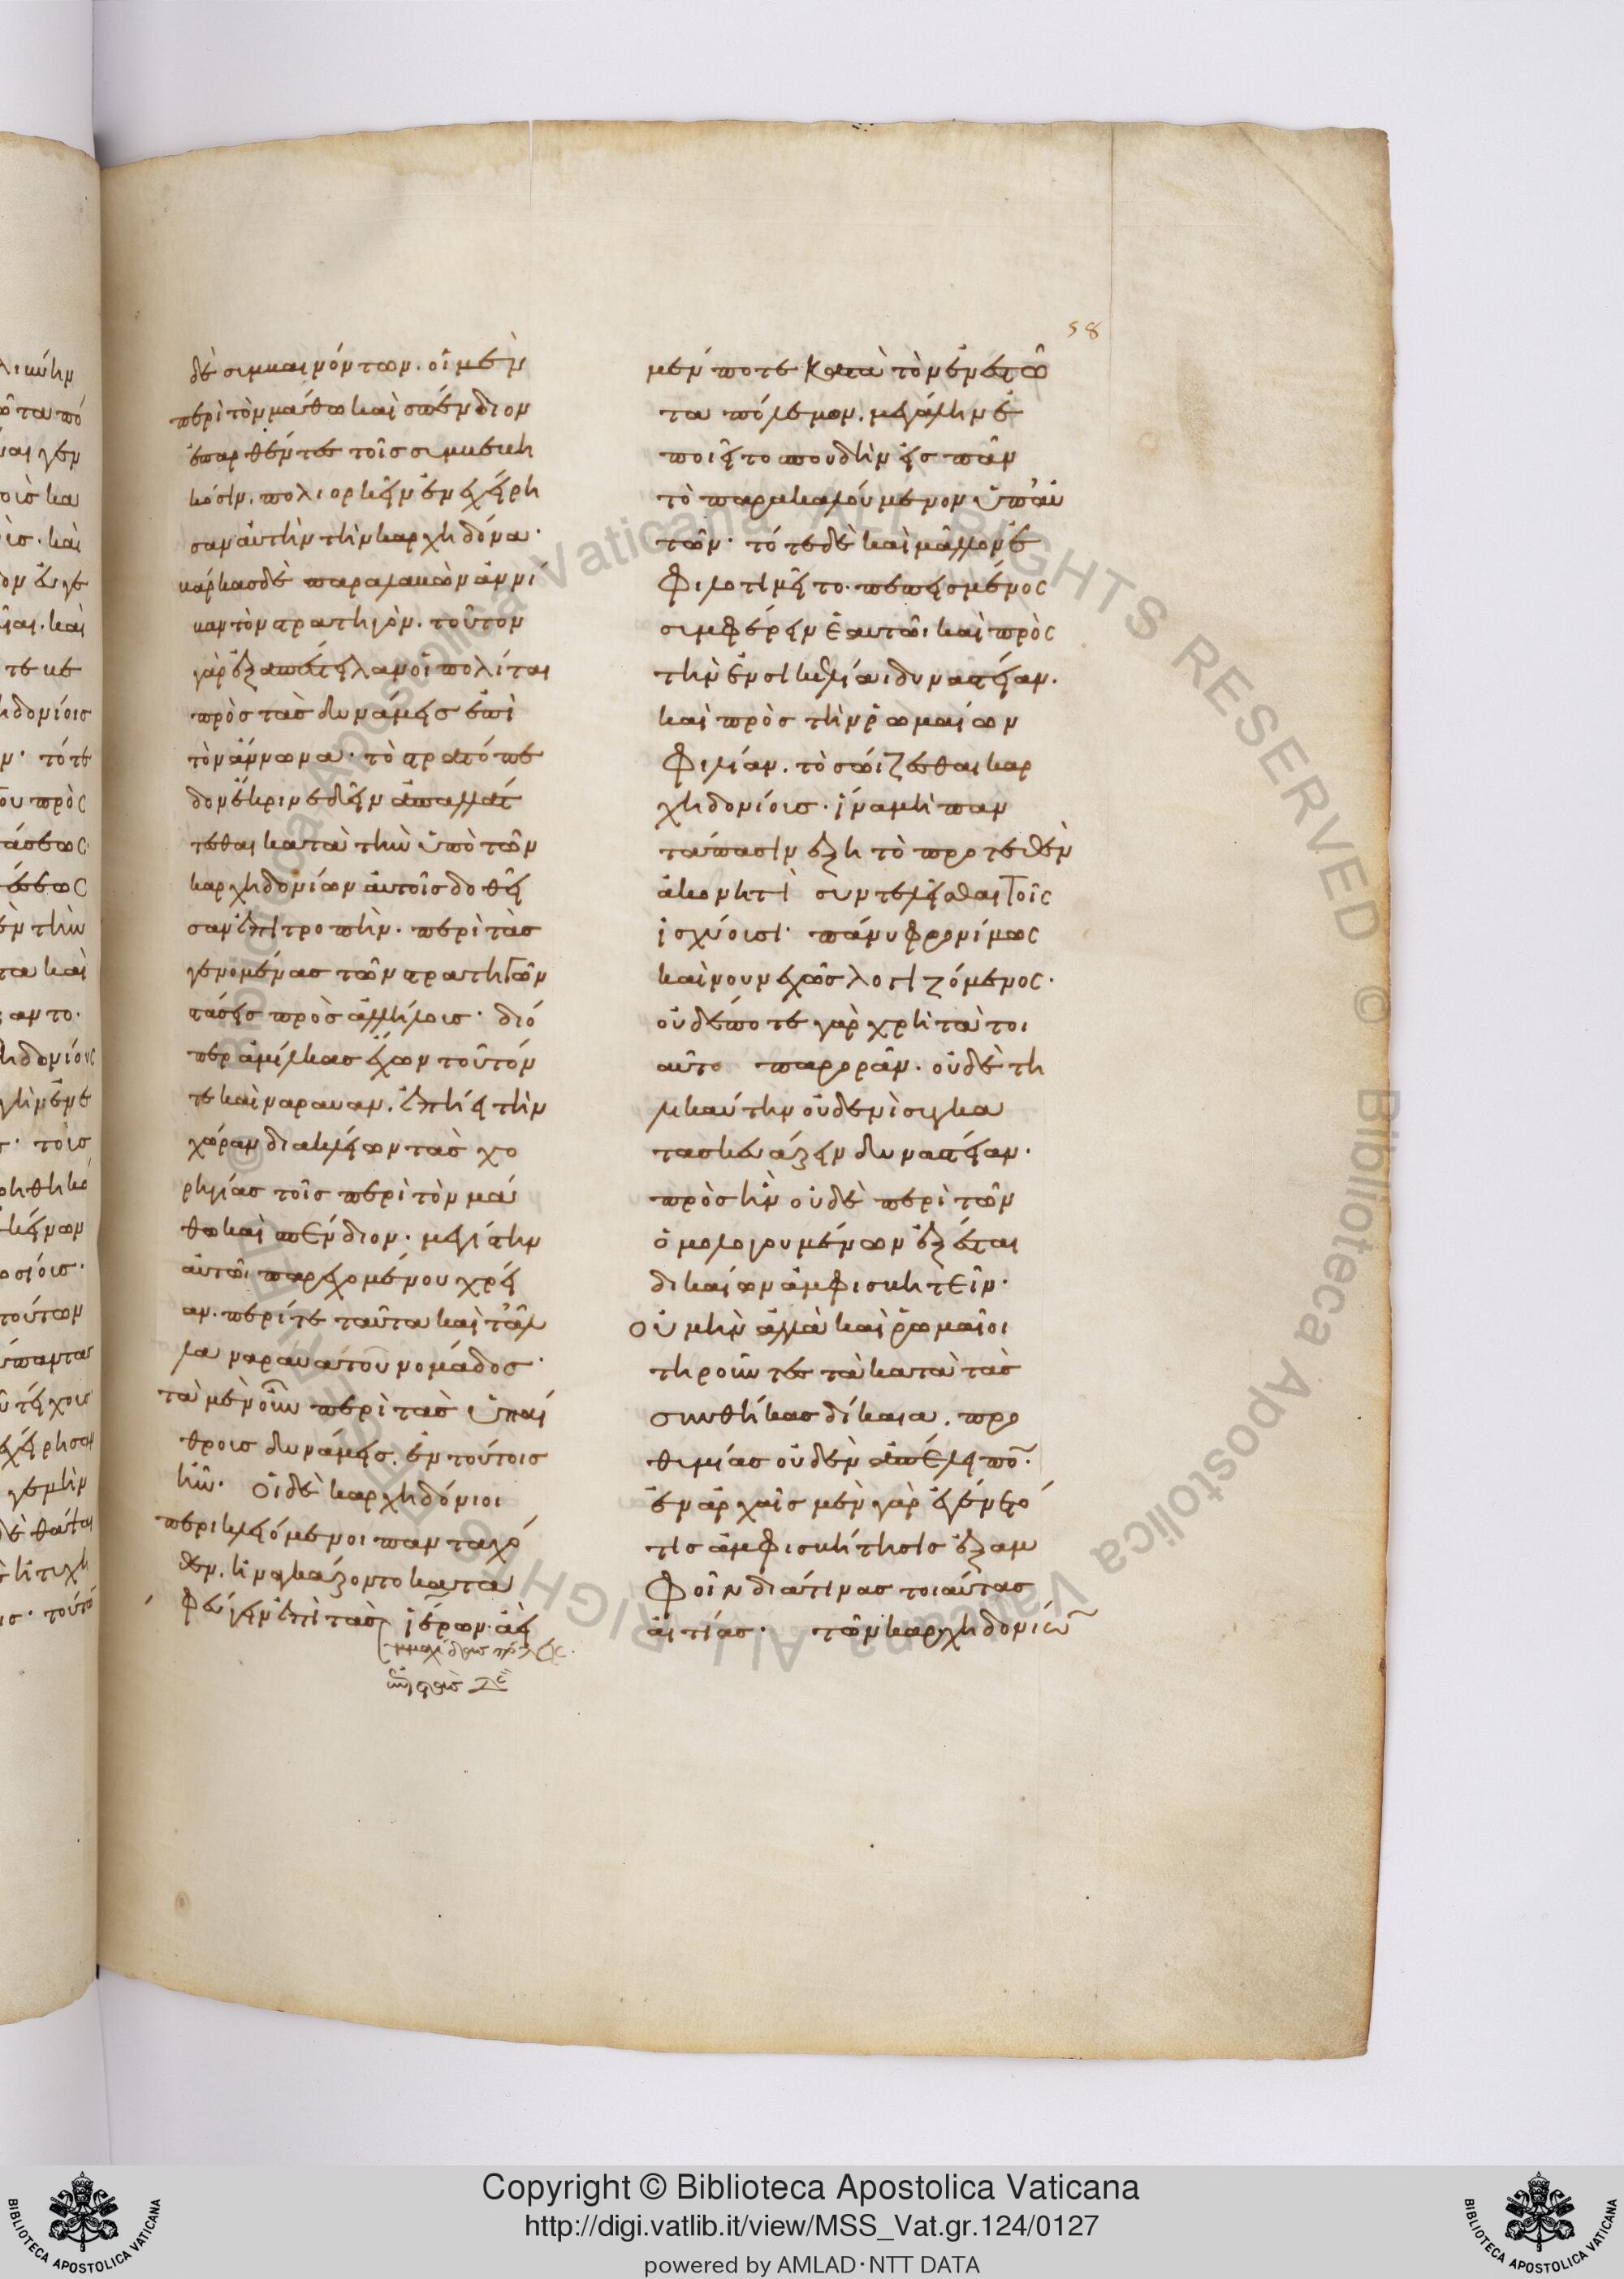 58
δὲ συμβαινόντων. οἱ μὲν
περὶ τὸν μάθω καὶ σπένδιον
ἐπαρθέντες τοῖς συμβεβη
κόσιν. πολιορκεῖν ἐνεχείρη
σαν αὐτὴν τὴν καρχηδόνα·
βάρκας δὲ παραλαβὼν ἀννί
βαν τὸν στρατηγὸν. τοῦτον
γὰρ ἐξαπέστειλαν οἱ πολίται
πρὸς τὰς δυνάμεις ἐπὶ
τὸν ἄννωνα· τὸ στρατόπε
δον ἔκρινε δεῖν ἀπαλλάτ
τεσθαι κατὰ τὴν ὑπὸ τῶν
καρχηδονίων αὐτοῖς δοθεῖ
σαν ἐπιτροπὴν· περὶ τὰς
γενομένας τῶν στρατηγῶν
στάσεις πρὸς ἀλλήλοις· διό
περ ἀμίλκας ἔχων τοῦτόν
τε καὶ ναραυαν. ἐπήει τὴν
χώραν διακλείων τὰς χο
ρηγίας τοῖς περὶ τὸν μά
θω καὶ σπένδιον· μεγίστην
αὐτῶι παρεχομένου χρεί
αν. περί τε ταῦτα καὶ τἆλ
λα ναραυα τοῦ νομάδος·
τὰ μὲν οὖν περὶ τὰς ὑπαί
θροις δυνάμεις. ἐν τούτοις
ἦν· Οἱ δὲ καρχηδόνιοι
περικλειόμενοι πανταχό
θεν. ἠναγκάζοντο κατα
φεύγειν ἐπὶ τὰς ἱέρων ἀεὶ
μέν ποτε κατὰ τὸν ἐνεστῶ
τα πόλεμον. μεγάλην ἐ
ποιεῖτο σπουδὴν εἰς πᾶν
τὸ παρακαλούμενον ὑπ᾽ αὐ
τῶν· τότε δὲ καὶ μᾶλλον ἐ
φιλοτιμεῖτο. πεπεισμένος
συμφέρειν ἑαυτῶι καὶ πρὸς
τὴν ἐν σικελίαι δυναστείαν.
καὶ πρὸς τὴν ῥωμαίων
φιλίαν. τὸ σώιζεσθαι καρ
χηδονίοις· ἵνα μὴ παν
τάπασιν ἐξῆ τὸ προτεθὲν
ἀκονητὶ συντελεῖσθαι τοῖς
ἰσχύουσι· πάνυ φρονίμως
καὶ νουνεχῶς λογιζόμενος·
οὐδέποτε γὰρ χρὴ τὰ τοι
αῦτα παρορᾶν. οὐδὲ τη
λικαύτην οὐδενὶ συγκα
τασκευάζειν δυναστείαν.
πρὸς ἣν οὐδὲ περὶ τῶν
ὁμολογουμένων ἐξέσται
δικαίων ἀμφισβητεῖν·
Οὐ μὴν ἀλλὰ καὶ ῥωμαῖοι
τηροῦντες τὰ κατὰ τὰς
συνθήκας δίκαια. προ
θυμίας οὐδὲν ἀπέλειπον·
ἐν ἀρχαῖς μὲν γὰρ ἐγένετό
τις ἀμφισβήτησις ἐξ ἀμ
φοῖν διά τινας τοιαύτας
αἰτίας· τῶν καρχηδονίων
Copyright © Biblioteca Apostolica Vaticana
http://digi.vatlib.it/view/MSS_Vat.gr.124/0127
powered by AMLAD·NTT DATA